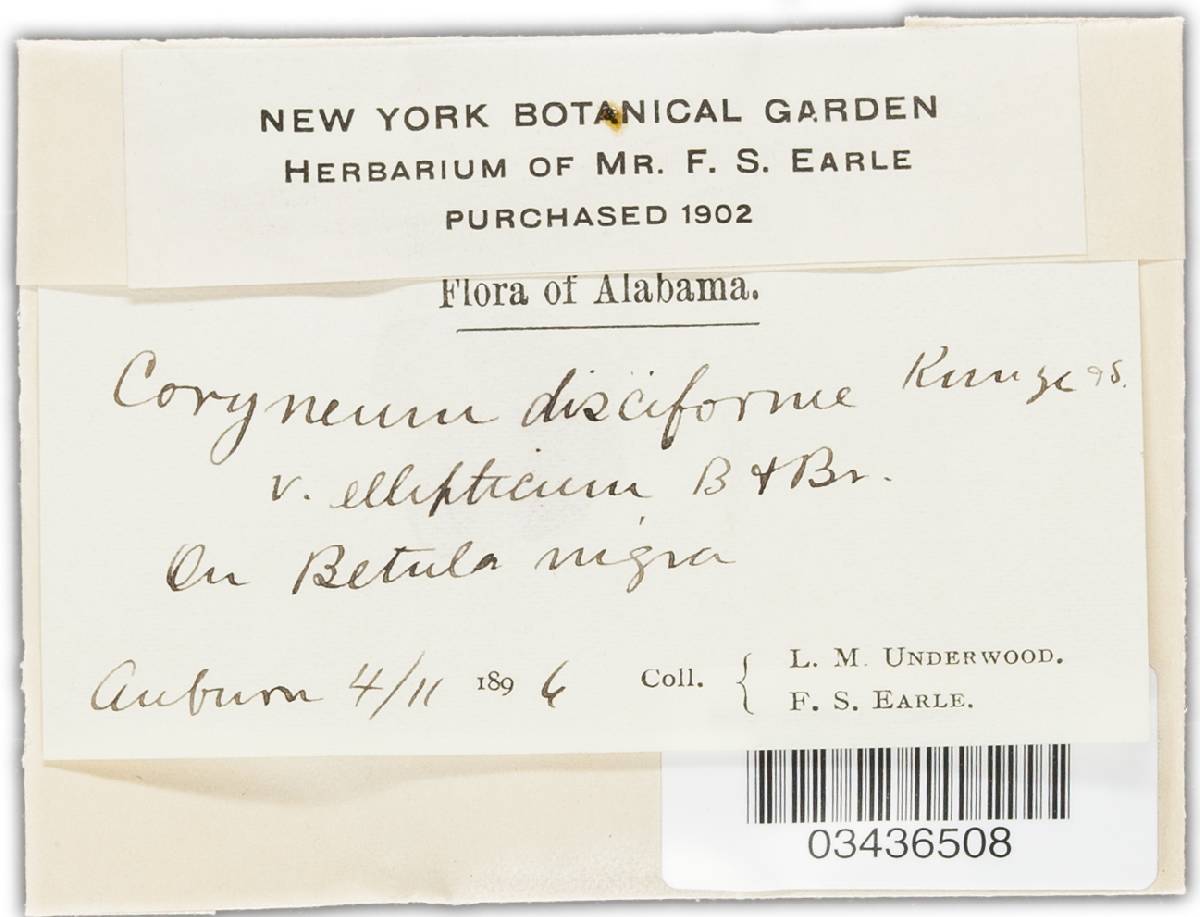 NEW YORK BOTANICAL GARDEN
HERBARIUM OF MR. F. S. EARLE
PURCHASED 1902
Flora of Alabama.
Coryneum disciforme Kunze & S.
v. ellipticum B & Br.
On Betula nigra
Auburn 4/11 1896 Coll. { L. M. UNDERWOOD.
F. S. EARLE.
03436508